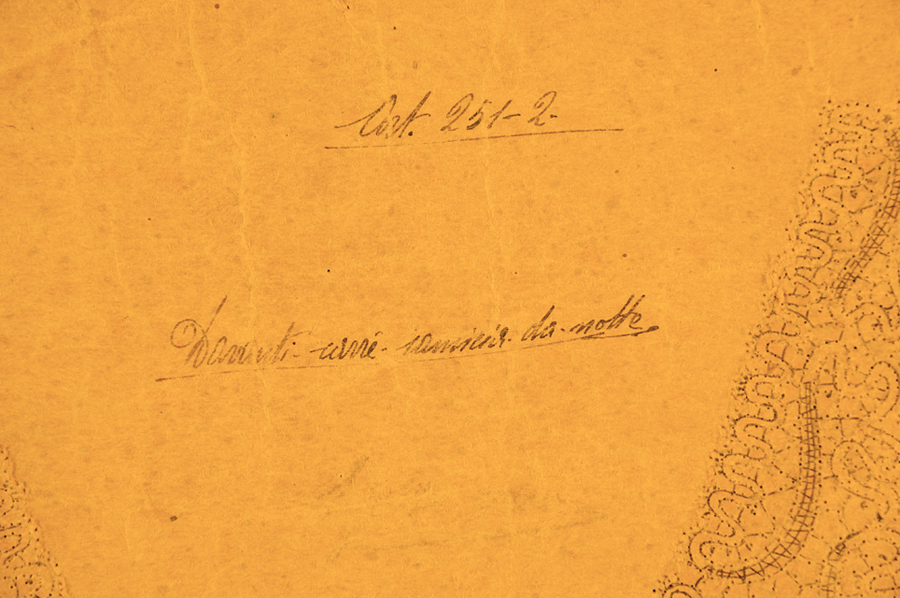 Cart. 251-2-
Davanti-carré-camicia-da-notte